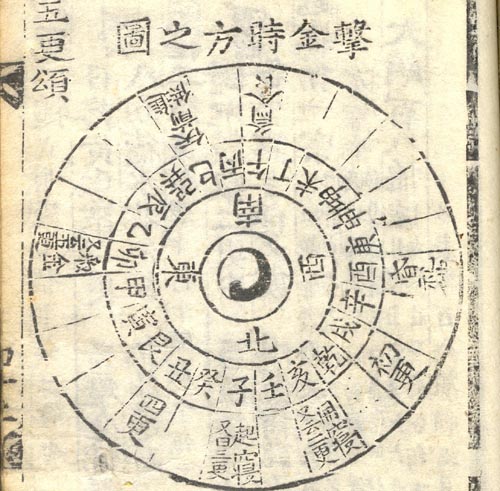 擊金時方之圖
五更頌
南
西
北
東
丙午丁未坤申庚酉辛戌乾亥壬子癸丑艮寅甲卯乙辰巽巳
初更
二更
起寢
三更
四更